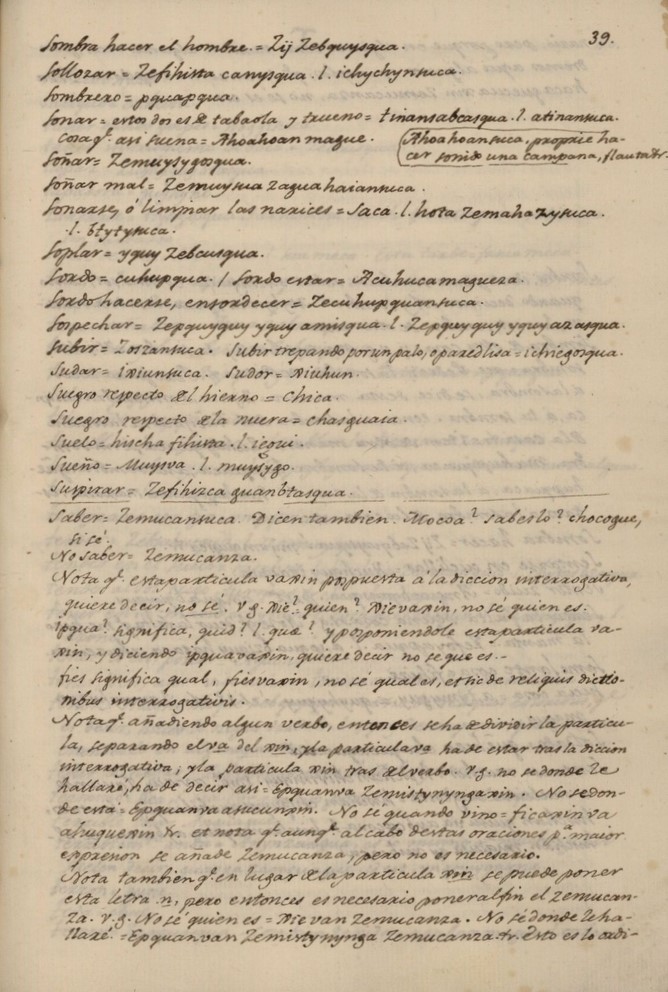 39.
Sombra hacer el hombre = Zij Zebquysqua.
Sollozar = Zefihista canysqua .l. ichychynsuca.
Sombrero = pquapqua.
Sonar = estos dos es de tabaola y trueno = tinansabcasqua .l. atinansuca.
Cosa q.e asi suena = Ahoahoan mague. (Ahoahoansuca, proprie ha-
cer sonido una campana, flauta &r.
Soñar = Zemuysygosqua.
Soñar mal = Zemuysua Zaguahaiansuca.
Sonarse, ó limpiar las narices = Saca .l. hota Zemahazysuca.
.l. btytysuca.
Soplar = yquy Zebcusqua.
Sordo = cuhupqua. / Sordo estar = Acuhucamagueza.
Sordo hacerse, ensordecer = Zecuhupquansuca.
Sospechar = Zepquyquy yquy amisqua .l. Zepquyquy yquy azasqua.
Subir = Zoszansuca. Subir trepando por un palo, o pared lisa = ichiegosqua.
Sudar = ixiunsuca. Sudor = xiuhun.
Suegro respecto del hierno = Chica.
Suegro respecto de la nuera = chasguaia.
Suelo = hischa fihista .l. iegui.
Sueño = Muysva .l. muysygo.
Suspirar = Zefihizca guanbtasqua.
Saber = Zemucansuca. Dicen tambien. Mocoa? sabeslo? chocogue,
si sé.
No saber = Zemucanza.
Nota q.e esta particula vaxin pospuesta á la diccion interrogativa,
quiere decir, no sé. V.g. Xie? quien? Xievaxin, no sé quien es.
Ipqua? significa, quid? l. quæ? y posponiendole esta particula va-
xin, y diciendo ipquavaxin, quiere decir no se que es.-
fies significa qual, fiesvaxin, no sé qual es, et sic de reliquis dictio-
nibus interrogativis.
Nota q.e añadiendo algun verbo, entonces se ha de dividir la particu-
la, separando el va del xin, y la particula va ha de estar tras la dicion
interrogativa, y la particula xin tras del verbo. V.g. no se donde le
hallaré, ha de decir asi = Epquanva Zemistynynga xin. No se don-
de está = Epquanva asucunxin. No sé quando vino = ficaxin va
ahuquexin &r. et nota q.e aunq.e al cabo destas oraciones p.a maior
expresion se añade Zemucanza, pero no es necesario.
Nota tambien q.e en lugar de la particula xin se puede poner
esta letra n, pero entonces es necesario poner al fin el Zemucan-
za. V.g. No sé quien es = Xie van Zemucanza. No sé donde le ha-
llaré. = Epquanvan Zemistynynga Zemucanza &r. Esto es lo ordi-